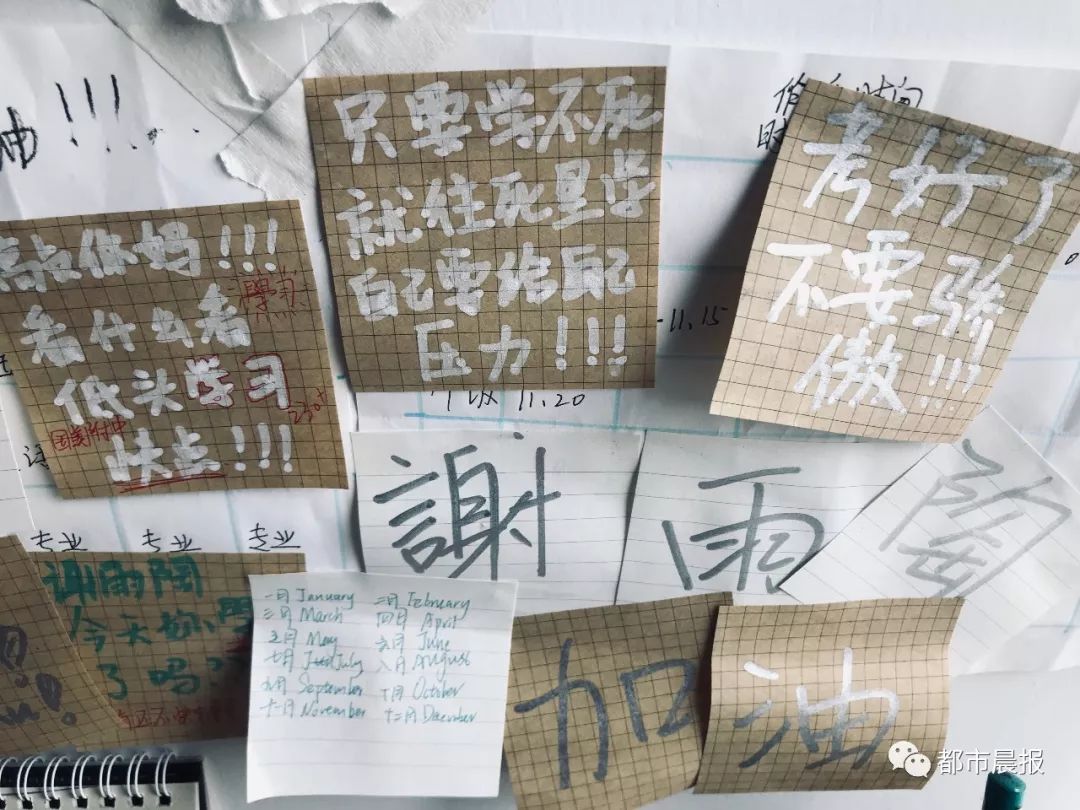 油!!!
时间
只要学不死
就往死里学
自己要给自己
压力!!!
考好了
不要骄
傲!!!
你妈!!!
看什么看
學习
低头学习
230+
国美附中
快点!!!
11.15
11.20
謝
雨
陶
专业 专业 专业
谢雨陶
今天你
了吗??
一月 January 二月 February
三月 March 四月 April
五月 May 六月 June
七月 July 八月 AUGUSt
九月 September 十月 October
十一月 November 十二月 December
加
油
都市晨报